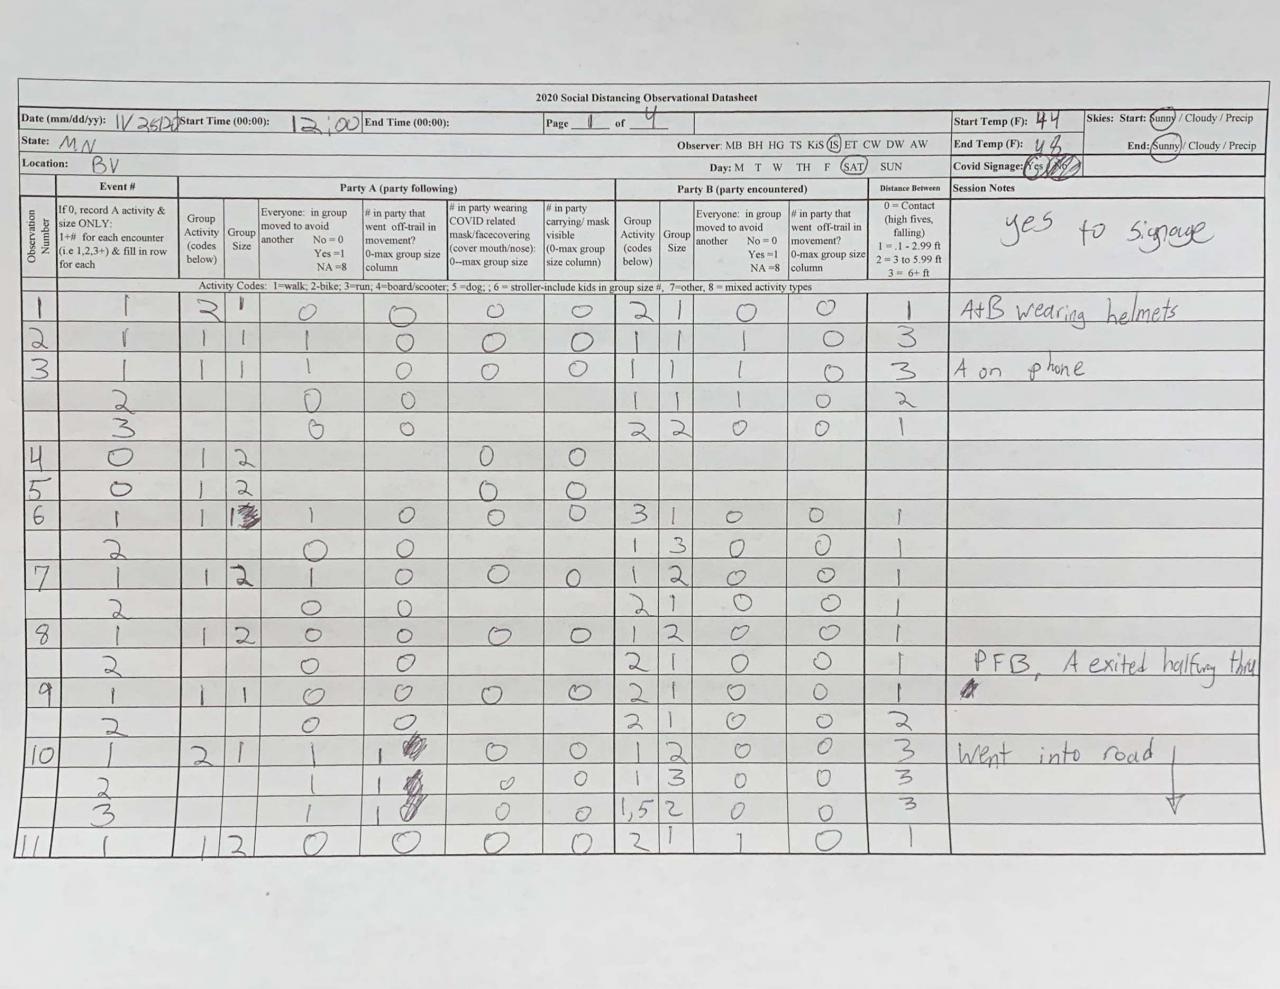 2020 Social Distancing Observational Datasheet
Date (mm/dd/yy): Start Time (00:00): 12:00 End Time (00:00): Page 1 of 4 Start Temp (F): 44 Skies: Start: Sunny / Cloudy / Precip
State: MN Observer: MB BH HG TS KiS IS ET CW DW AW End Temp (F): 48 End: Sunny / Cloudy / Precip
Location: BV Day: M T W TH F SAT SUN Covid Signage: Yes / No
Event # Party A (party following) Party B (party encountered) Distance Between Session Notes
Observation Number
If 0, record A activity & size ONLY: 1+# for each encounter (i.e 1,2,3+) & fill in row for each
Group Activity (codes below)
Group Size
Everyone: in group moved to avoid another No = 0 Yes =1 NA =8
# in party that went off-trail in movement? 0-max group size column
# in party wearing COVID related mask/facecovering (cover mouth/nose): 0--max group size
# in party carrying/ mask visible (0-max group size column)
Group Activity (codes below)
Group Size
Everyone: in group moved to avoid another No = 0 Yes =1 NA =8
# in party that went off-trail in movement? 0-max group size column
0 = Contact (high fives, falling) 1 = .1 - 2.99 ft 2 = 3 to 5.99 ft 3 = 6+ ft
yes to signage
Activity Codes: 1=walk; 2-bike; 3=run; 4=board/scooter; 5 =dog; ; 6 = stroller-include kids in group size #, 7=other, 8 = mixed activity types
1 1 2 1 0 0 0 0 2 1 0 0 1 A+B wearing helmets
2 1 1 1 1 0 0 0 1 1 1 0 3
3 1 1 1 1 0 0 0 1 1 1 0 3 A on phone
2 0 0 1 1 1 0 2
3 0 0 2 2 0 0 1
4 0 1 2 0 0
5 0 1 2 0 0
6 1 1 1 1 0 0 0 3 1 0 0 1
2 0 0 1 3 0 0 1
7 1 1 2 1 0 0 0 1 2 0 0 1
2 0 0 2 1 0 0 1
8 1 1 2 0 0 0 0 1 2 0 0 1
2 0 0 2 1 0 0 1 PFB, A exited halfway thru
9 1 1 1 0 0 0 0 2 1 0 0 1
2 0 0 2 1 0 0 2
10 1 2 1 1 1 0 0 1 2 0 0 3 Went into road
2 1 1 0 0 1 3 0 0 3
3 1 1 0 0 1,5 2 0 0 3
11 1 1 2 0 0 0 0 2 1 1 0 1